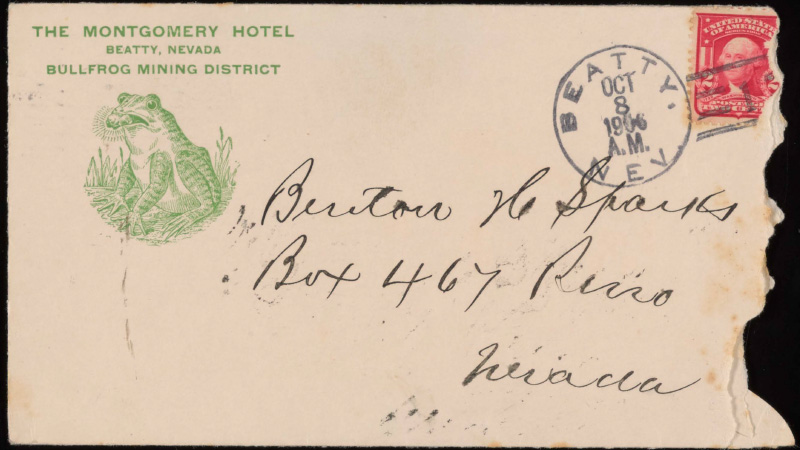 THE MONTGOMERY HOTEL
BEATTY, NEVADA
BULLFROG MINING DISTRICT
UNITED STATES
OF AMERICA
BEATTY.
OCT
8
1906
A.M.
NEV.
Benton H Sparks
Box 467 Reno
Nevada